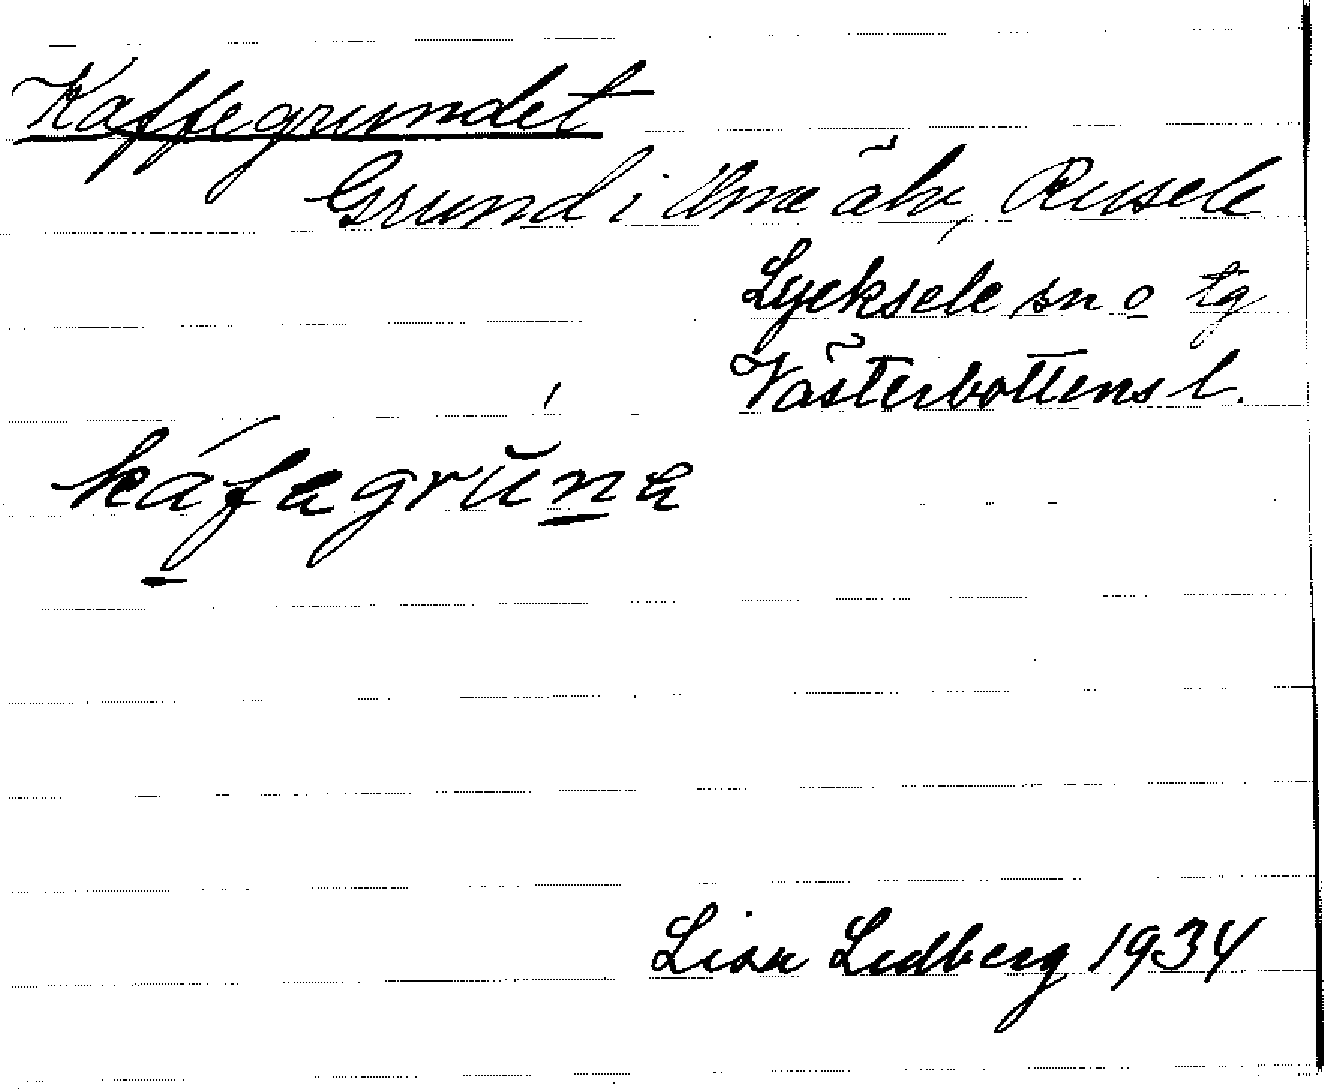 Kaffegrundet
Grund i Ume älv, Rusele
Lycksele sn o tg
Västerbottens l.
káfagrŭna
Lisa Lidberg 1934